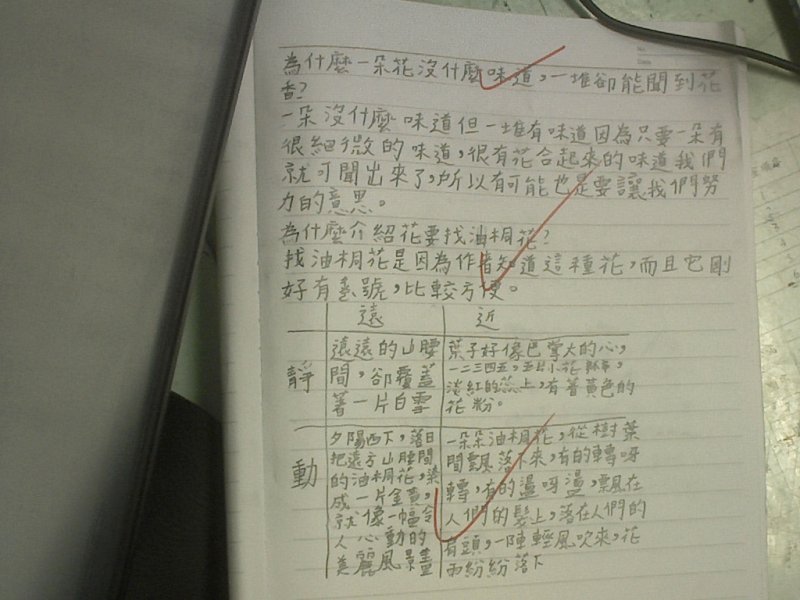 為什麼一朵花沒什麼味道，一堆卻能聞到花
香？
一朵沒什麼味道但一堆有味道因為只要一朵有
很細微的味道，很有花合起來的味道我們
就可聞出來了，所以有可能也是要讓我們努
力的意思。
為什麼介紹花要找油桐花？
找油桐花是因為作者知道這種花，而且它剛
好有號，比較方便。
遠 近
靜
遠遠的山腰
間，卻覆蓋
著一片白雪
葉子好像巴掌大的心，
一二三四五，五片小花瓣，
淡紅的蕊上，有著黃色的
花粉。
動
夕陽西下，落日
把遠方山腰間
的油桐花，染
成一片金黃，
就像一幅令
人心動的
美麗風景畫
一朵朵油桐花，從樹葉
間飄落下來，有的轉呀
轉，有的盪呀盪，飄在
人們的髮上，落在人們的
肩頭，一陣輕風吹來，花
雨紛紛落下